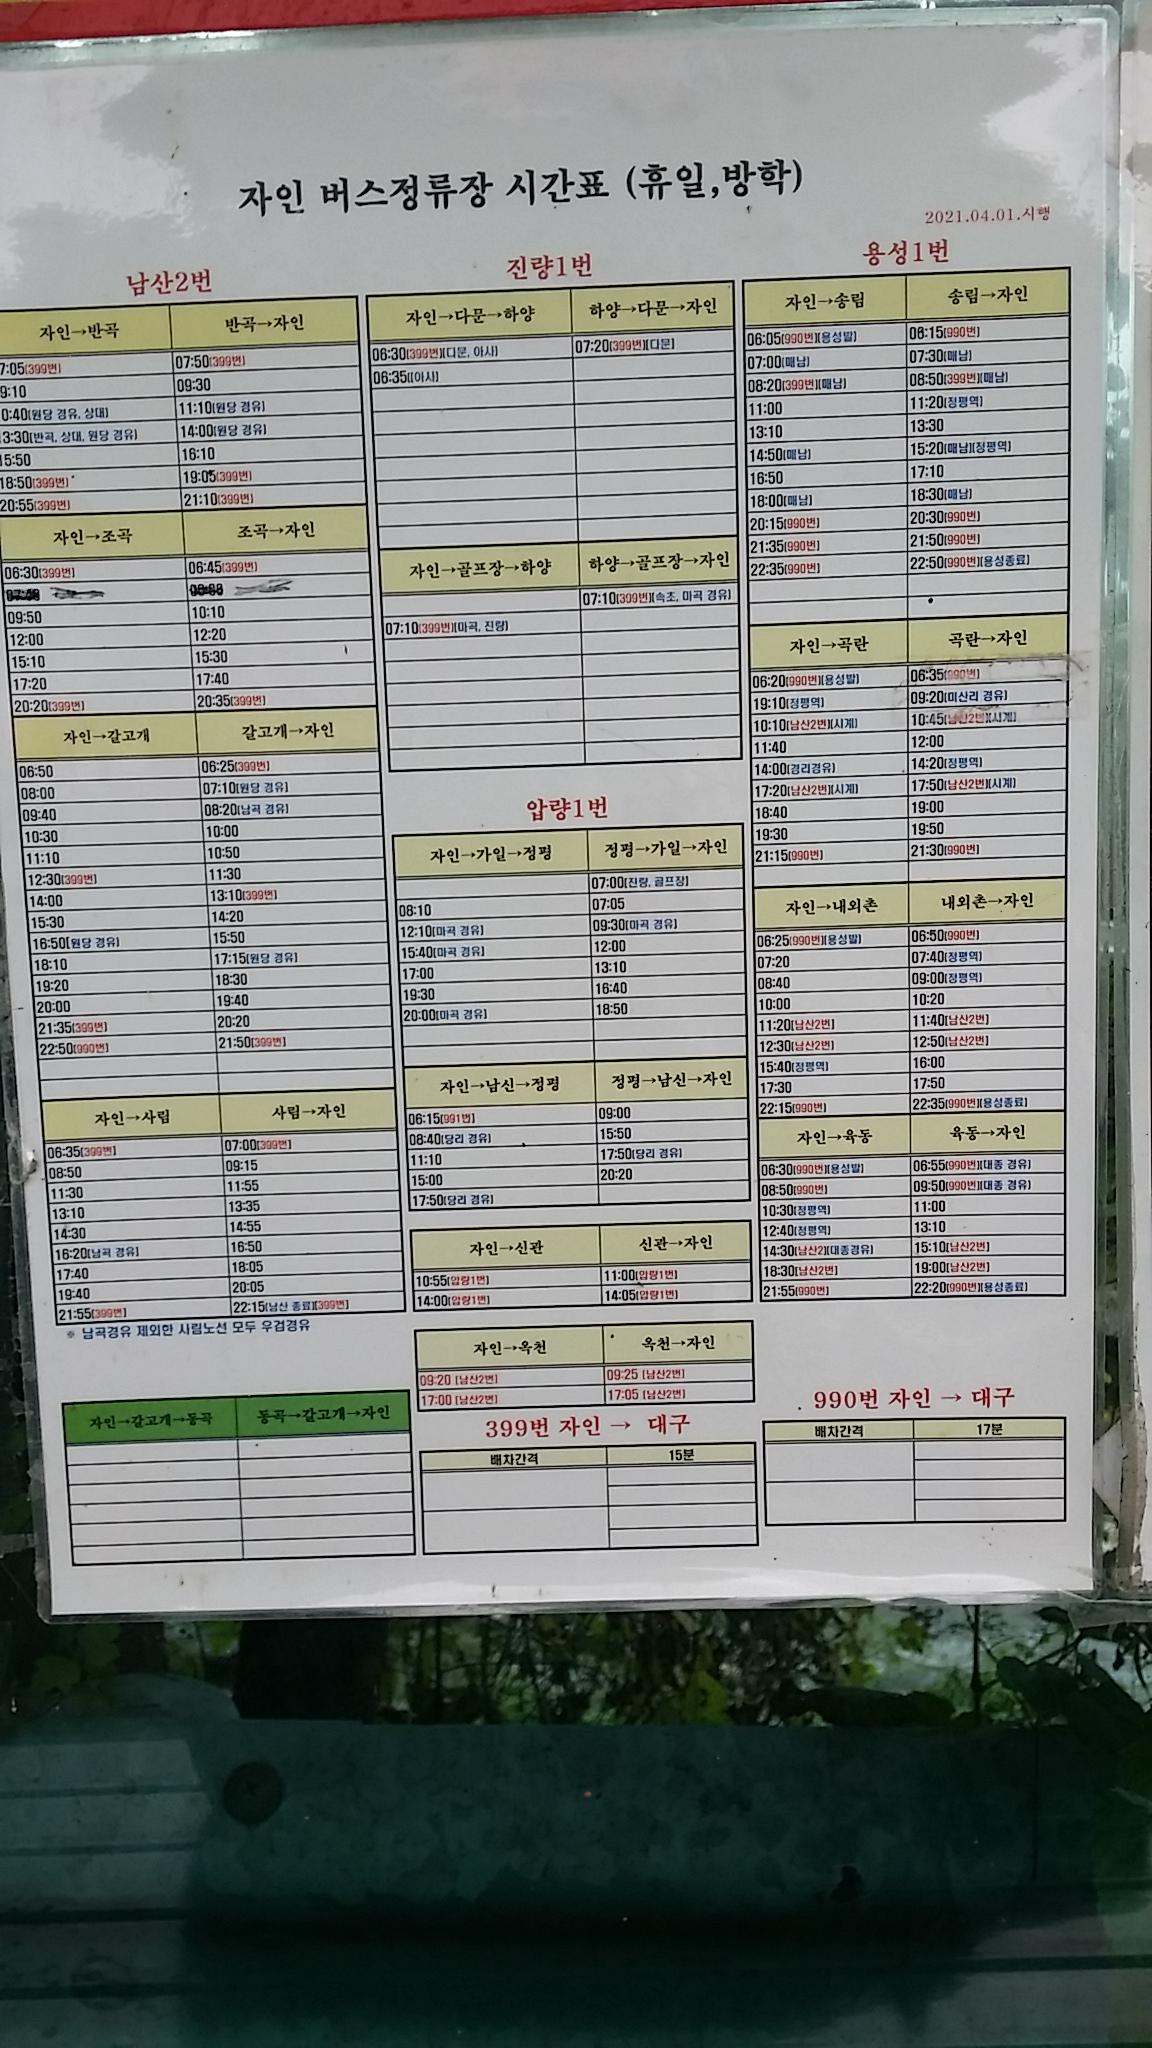 자인 버스정류장 시간표 (휴일,방학)
2021.04.01.시행
남산2번
자인→반곡 반곡→자인
7:05(399번) 07:50(399번)
9:10 09:30
0:40(원당 경유, 상대) 11:10(원당 경유)
3:30(반곡, 상대, 원당 경유) 14:00(원당 경유)
15:50 16:10
18:50(399번) 19:05(399번)
20:55(399번) 21:10(399번)
자인→조곡 조곡→자인
06:30(399번) 06:45(399번)
09:50 10:10
12:00 12:20
15:10 15:30
17:20 17:40
20:20(399번) 20:35(399번)
자인→갈고개 갈고개→자인
06:50 06:25(399번)
08:00 07:10(원당 경유)
09:40 08:20(남곡 경유)
10:30 10:00
11:10 10:50
12:30(399번) 11:30
14:00 13:10(399번)
15:30 14:20
16:50(원당 경유) 15:50
18:10 17:15(원당 경유)
19:20 18:30
20:00 19:40
21:35(399번) 20:20
22:50(990번) 21:50(399번)
자인→사림 사림→자인
06:35(399번) 07:00(399번)
08:50 09:15
11:30 11:55
13:10 13:35
14:30 14:55
16:20(남곡 경유) 16:50
17:40 18:05
19:40 20:05
21:55(399번) 22:15(남산 종료)(399번)
※ 남곡경유 제외한 사림노선 모두 우검경유
자인→갈고개→동곡 동곡→갈고개→자인
진량1번
자인→다문→하양 하양→다문→자인
06:30(399번)(다문, 아사) 07:20(399번)(다문)
06:35((아사)
자인→골프장→하양 하양→골프장→자인
07:10(399번)(속초, 마곡 경유)
07:10(399번)(마곡, 진량)
압량1번
자인→가일→정평 정평→가일→자인
07:00(진량, 골프장)
08:10 07:05
12:10(마곡 경유) 09:30(마곡 경유)
15:40(마곡 경유) 12:00
17:00 13:10
19:30 16:40
20:00(마곡 경유) 18:50
자인→남신→정평 정평→남신→자인
06:15(991번) 09:00
08:40(당리 경유) 15:50
11:10 17:50(당리 경유)
15:00 20:20
17:50(당리 경유)
자인→신관 신관→자인
10:55(압량1번) 11:00(압량1번)
14:00(압량1번) 14:05(압량1번)
자인→옥천 옥천→자인
09:20 (남산2번) 09:25 (남산2번)
17:00 (남산2번) 17:05 (남산2번)
399번 자인 → 대구
배차간격 15분
용성1번
자인→송림 송림→자인
06:05(990번)(용성발) 06:15(990번)
07:00(매남) 07:30(매남)
08:20(399번)(매남) 08:50(399번)(매남)
11:00 11:20(정평역)
13:10 13:30
14:50(매남) 15:20(매남)(정평역)
16:50 17:10
18:00(매남) 18:30(매남)
20:15(990번) 20:30(990번)
21:35(990번) 21:50(990번)
22:35(990번) 22:50(990번)(용성종료)
자인→곡란 곡란→자인
06:20(990번)(용성발) 06:35(990번)
19:10(정평역) 09:20(미산리 경유)
10:10(남산2번)(시계) 10:45(남산2번)(시계)
11:40 12:00
14:00(경리경유) 14:20(정평역)
17:20(남산2번)(시계) 17:50(남산2번)(시계)
18:40 19:00
19:30 19:50
21:15(990번) 21:30(990번)
자인→내외촌 내외촌→자인
06:25(990번)(용성발) 06:50(990번)
07:20 07:40(정평역)
08:40 09:00(정평역)
10:00 10:20
11:20(남산2번) 11:40(남산2번)
12:30(남산2번) 12:50(남산2번)
15:40(정평역) 16:00
17:30 17:50
22:15(990번) 22:35(990번)(용성종료)
자인→육동 육동→자인
06:30(990번)(용성발) 06:55(990번)(대종 경유)
08:50(990번) 09:50(990번)(대종 경유)
10:30(정평역) 11:00
12:40(정평역) 13:10
14:30(남산2)(대종경유) 15:10(남산2번)
18:30(남산2번) 19:00(남산2번)
21:55(990번) 22:20(990번)(용성종료)
990번 자인 → 대구
배차간격 17분